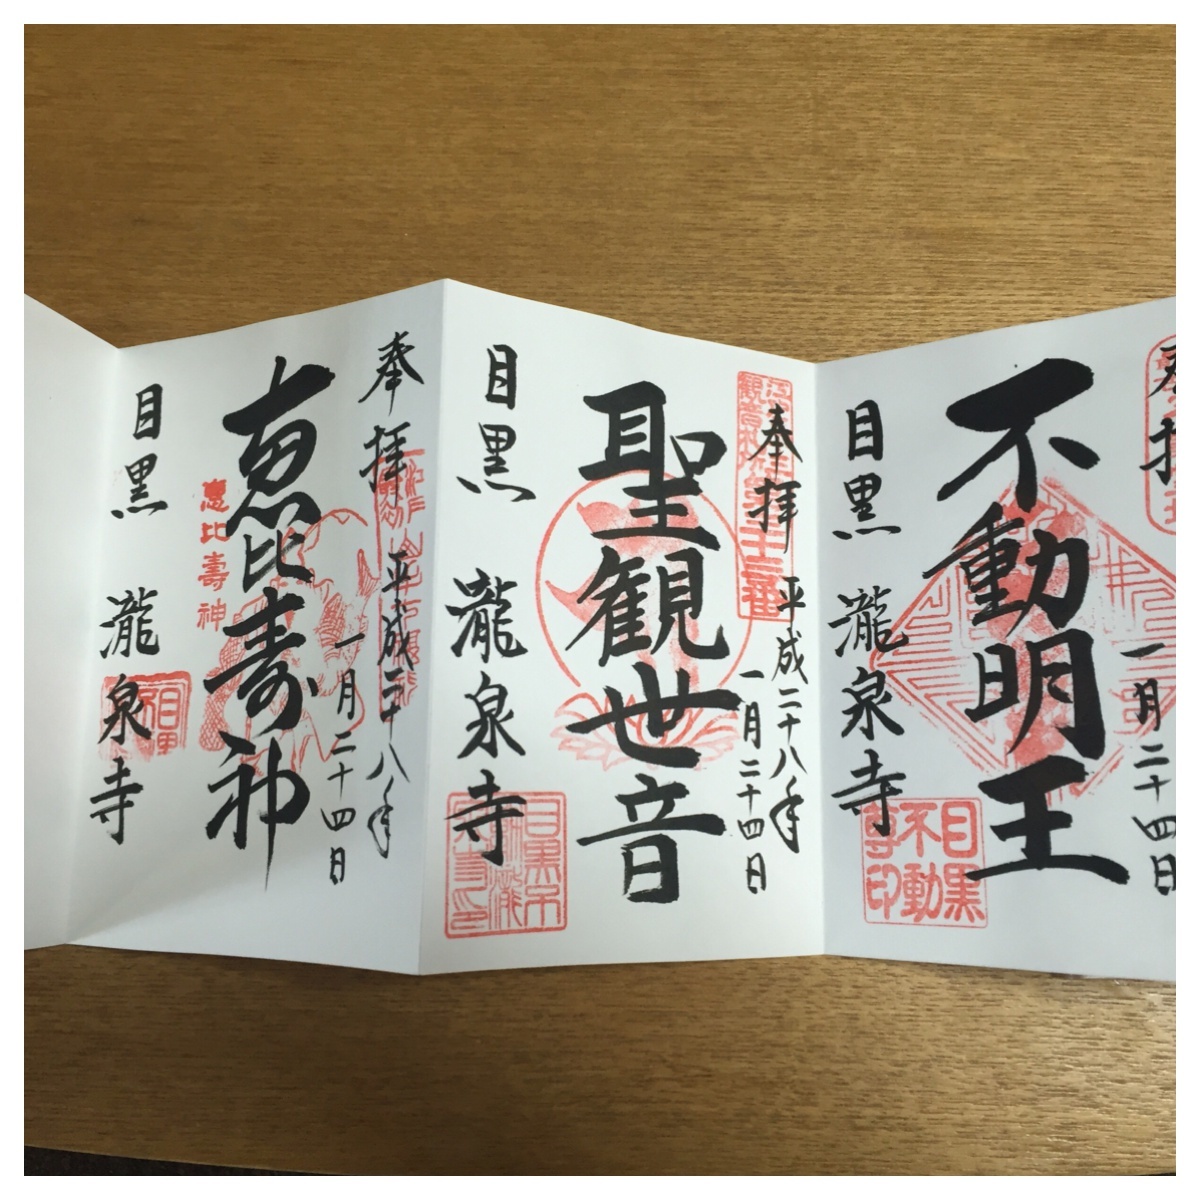 奉拝
一月二十四日
不動明王
目黒 瀧泉寺
目黒
不動
寺印
奉拝 平成二十八年
一月二十四日
聖観世音
目黒 瀧泉寺
奉拝 平成二十八年
一月二十四日
恵比寿神
恵比壽神
目黒 瀧泉寺